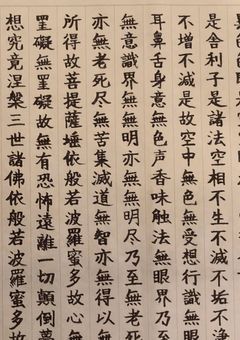 是舎利子是諸法空相不生不滅不垢不浄
不増不減是故空中無色無受想行識無眼
耳鼻舌身意無色声香味触法無眼界乃至
無意識界無無明亦無無明尽乃至無老死
亦無老死尽無苦集滅道無智亦無得以無
所得故菩提薩埵依般若波羅蜜多故心無
罣礙無罣礙故無有恐怖遠離一切顛倒夢
想究竟涅槃三世諸佛依般若波羅蜜多故